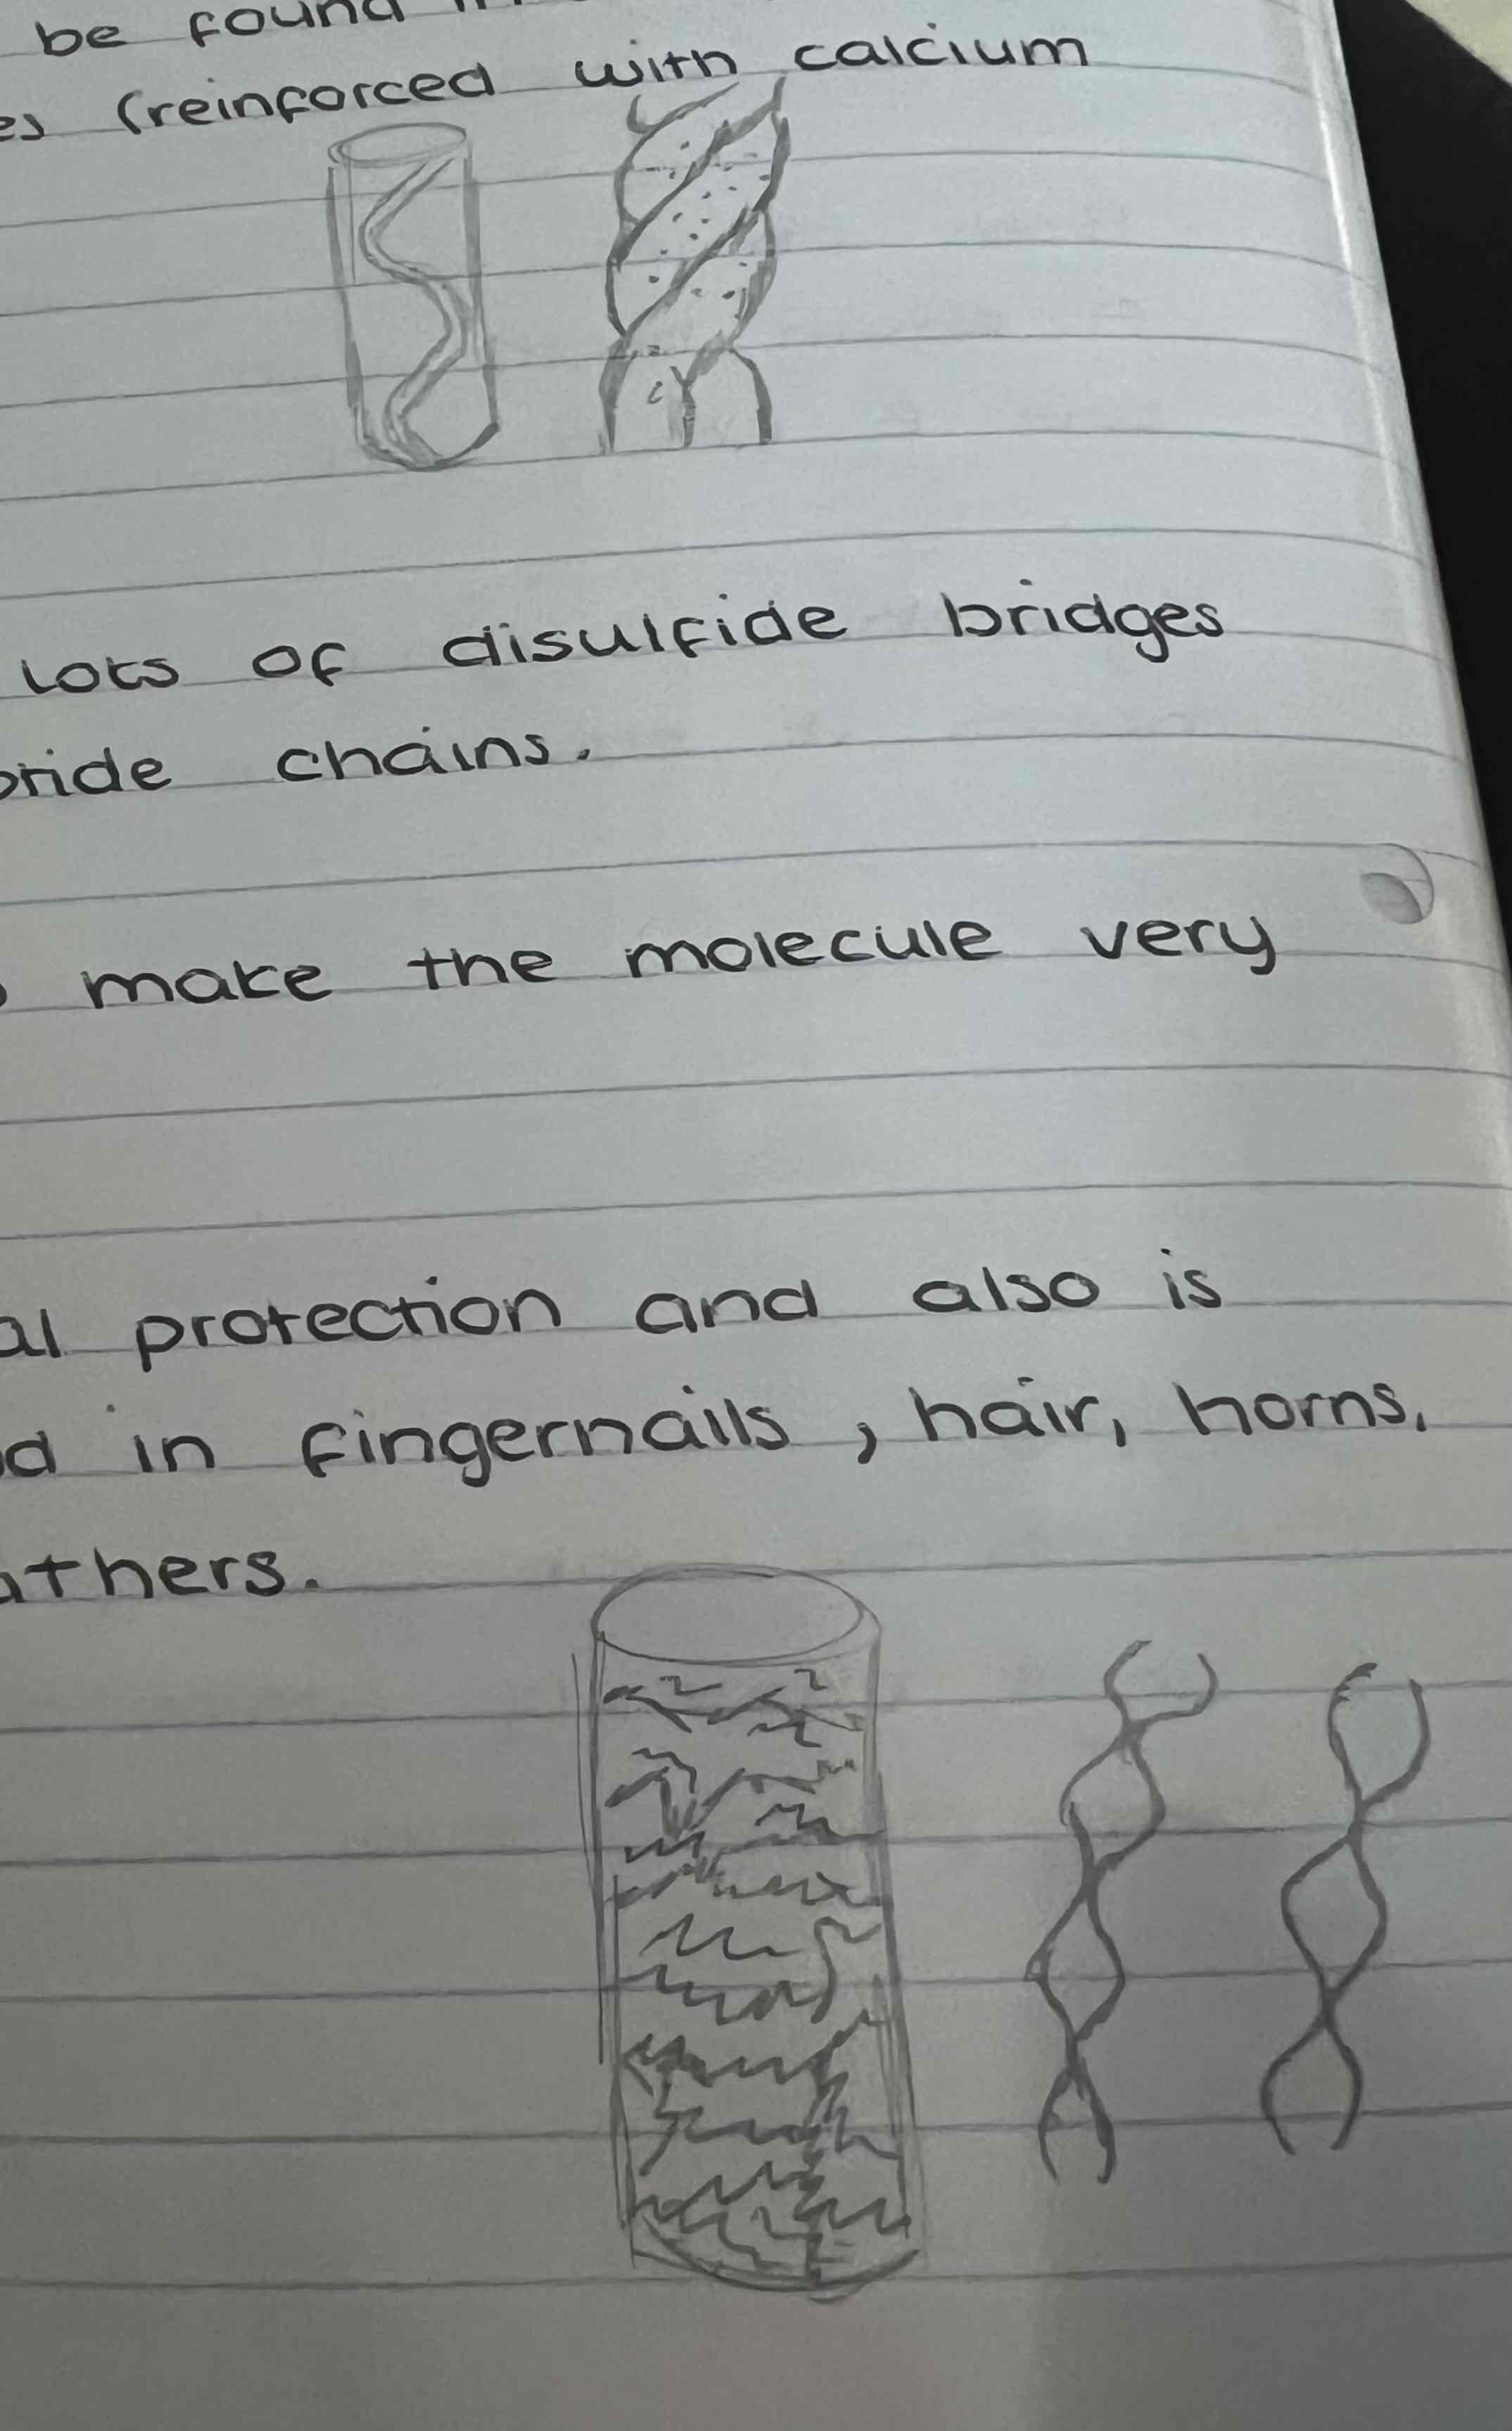 be found
(reinforced with calcium
lots of disulfide bridges
chains.
make the molecule very
protection and also is
in fingernails, hair, horns,